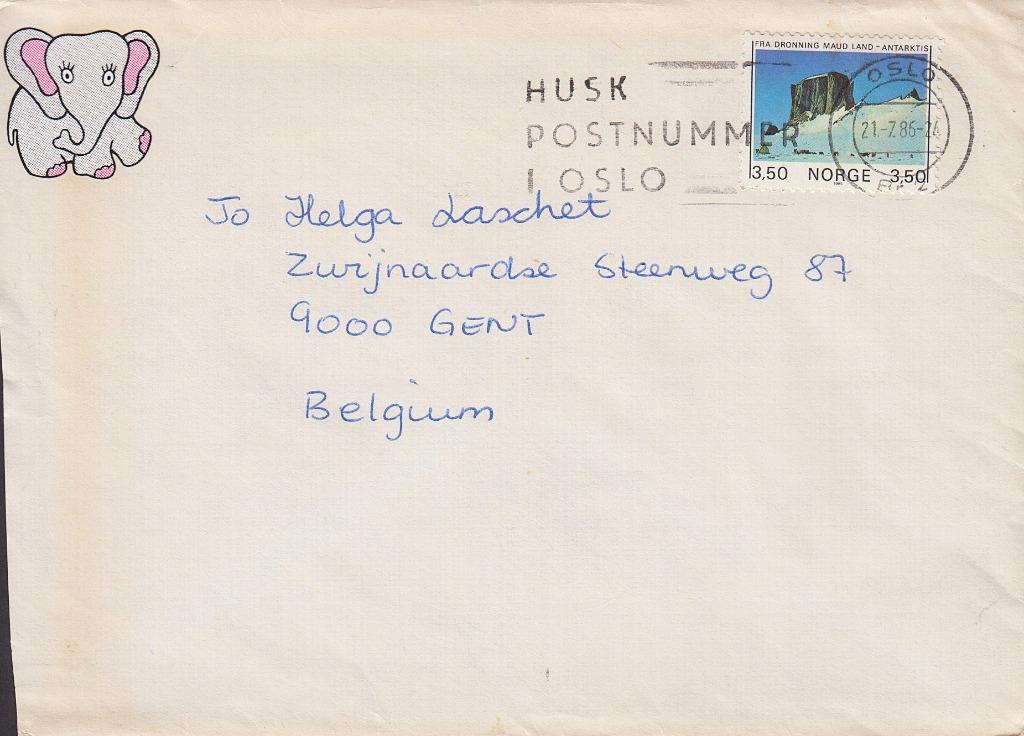 FRA DRONNING MAUD LAND-ANTARKTIS
HUSK
POSTNUMMER
I OSLO
OSLO
21.-7.86-
3.50 NORGE 3,50
To Helga Laschet
Zwijnaardse Steenweg 87
9000 GENT
Belgium